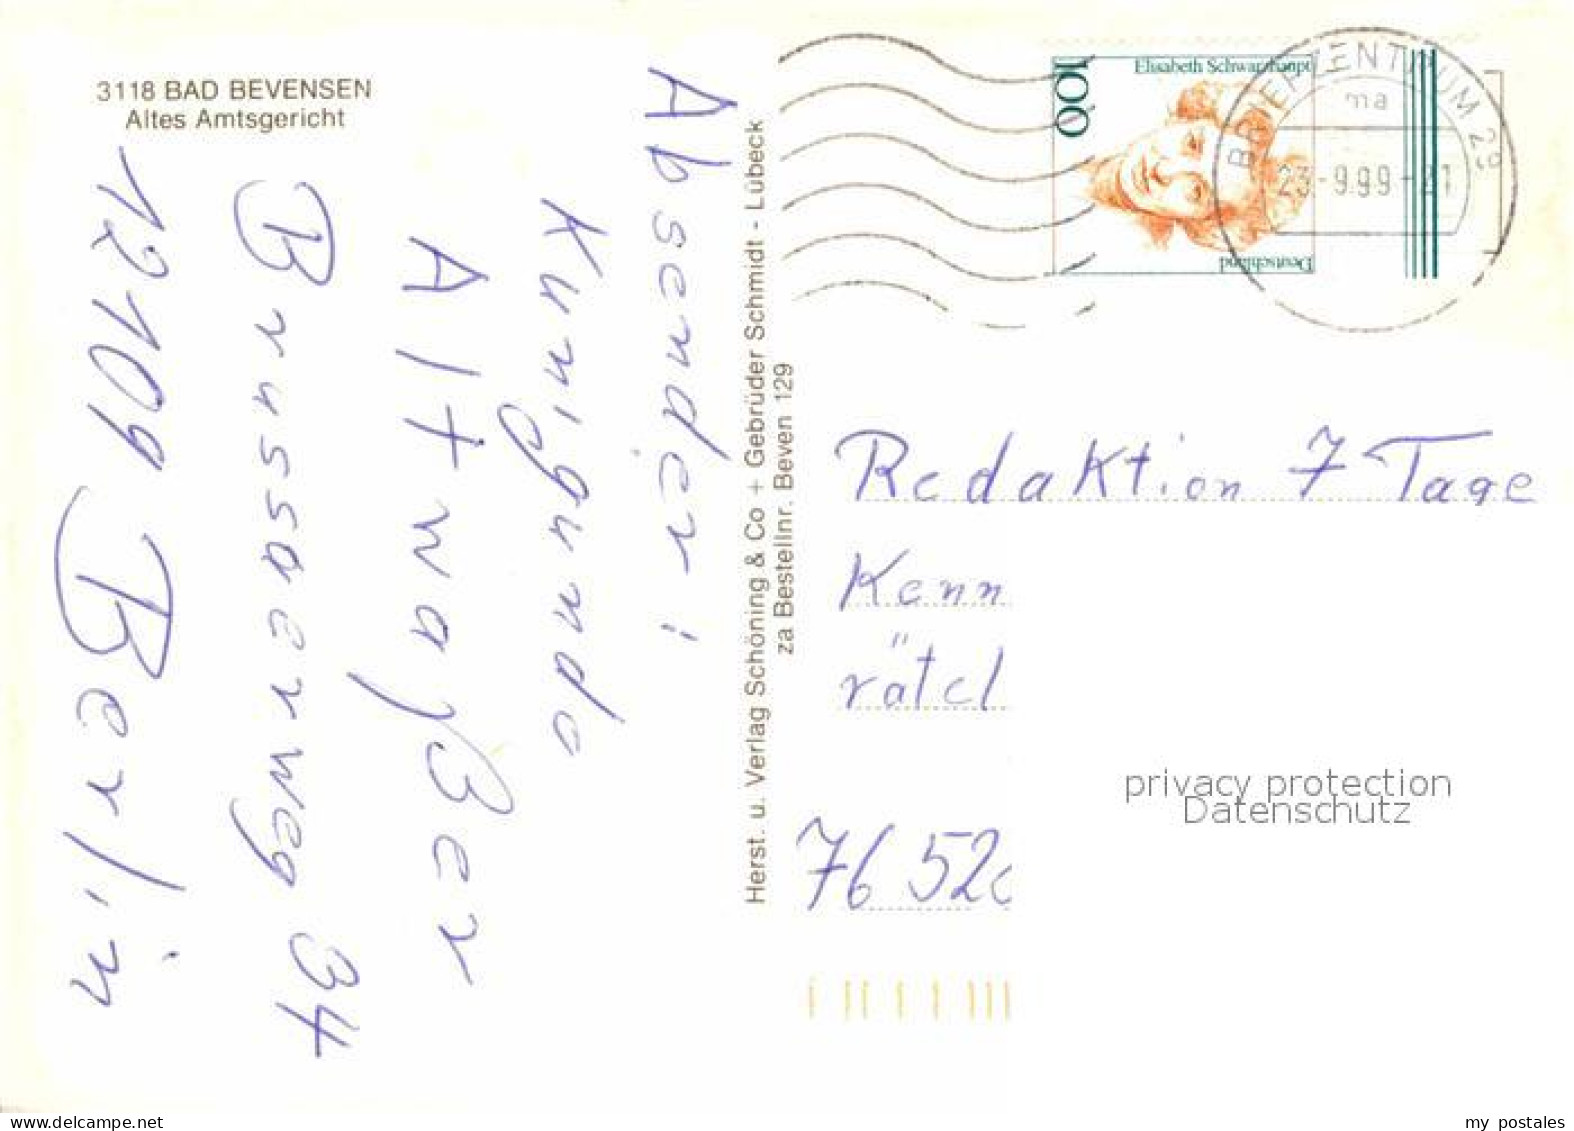 3118 BAD BEVENSEN
Altes Amtsgericht
Absender!
Kunigunde
Altwaßer
Brussaerweg 34
12109 Berlin
Herst. u. Verlag Schöning & Co + Gebrüder Schmidt - Lübeck
za Bestellnr. Beven 129
100
Elisabeth Schwarzhaupt
Deutschland
BRIEFZENTRUM 29
ma
23.-9.99-21
Redaktion 7 Tage
Kenn
rätel
76 52
privacy protection
Datenschutz
delcampe.net
my postales